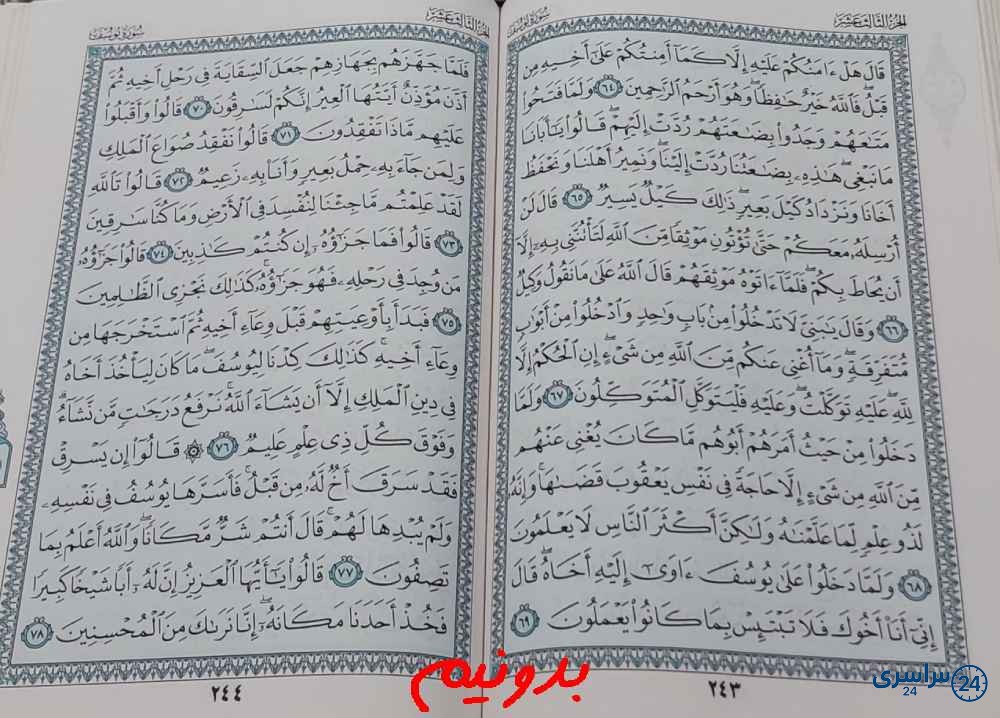 الجزء الثالث عشر
سورة يوسف
قَالَ هَلْ ءَامَنُكُمْ عَلَيْهِ إِلَّا كَمَآ أَمِنتُكُمْ عَلَىٰٓ أَخِيهِ مِن
قَبْلُ فَٱللَّهُ خَيْرٌ حَٰفِظًا وَهُوَ أَرْحَمُ ٱلرَّٰحِمِينَ ٦٤ وَلَمَّا فَتَحُوا۟
مَتَٰعَهُمْ وَجَدُوا۟ بِضَٰعَتَهُمْ رُدَّتْ إِلَيْهِمْ قَالُوا۟ يَٰٓأَبَانَا
مَا نَبْغِى هَٰذِهِۦ بِضَٰعَتُنَا رُدَّتْ إِلَيْنَا وَنَمِيرُ أَهْلَنَا وَنَحْفَظُ
أَخَانَا وَنَزْدَادُ كَيْلَ بَعِيرٍ ذَٰلِكَ كَيْلٌ يَسِيرٌ ٦٥ قَالَ لَنْ
أُرْسِلَهُۥ مَعَكُمْ حَتَّىٰ تُؤْتُونِ مَوْثِقًا مِّنَ ٱللَّهِ لَتَأْتُنَّنِى بِهِۦٓ إِلَّآ
أَن يُحَاطَ بِكُمْ فَلَمَّآ ءَاتَوْهُ مَوْثِقَهُمْ قَالَ ٱللَّهُ عَلَىٰ مَا نَقُولُ وَكِيلٌ
٦٦ وَقَالَ يَٰبَنِىَّ لَا تَدْخُلُوا۟ مِنۢ بَابٍ وَٰحِدٍ وَٱدْخُلُوا۟ مِنْ أَبْوَٰبٍ
مُّتَفَرِّقَةٍ وَمَآ أُغْنِى عَنكُم مِّنَ ٱللَّهِ مِن شَىْءٍ إِنِ ٱلْحُكْمُ إِلَّا
لِلَّهِ عَلَيْهِ تَوَكَّلْتُ وَعَلَيْهِ فَلْيَتَوَكَّلِ ٱلْمُتَوَكِّلُونَ ٦٧ وَلَمَّا
دَخَلُوا۟ مِنْ حَيْثُ أَمَرَهُمْ أَبُوهُم مَّا كَانَ يُغْنِى عَنْهُم
مِّنَ ٱللَّهِ مِن شَىْءٍ إِلَّا حَاجَةً فِى نَفْسِ يَعْقُوبَ قَضَىٰهَا وَإِنَّهُۥ
لَذُو عِلْمٍ لِّمَا عَلَّمْنَٰهُ وَلَٰكِنَّ أَكْثَرَ ٱلنَّاسِ لَا يَعْلَمُونَ
٦٨ وَلَمَّا دَخَلُوا۟ عَلَىٰ يُوسُفَ ءَاوَىٰٓ إِلَيْهِ أَخَاهُ قَالَ
إِنِّىٓ أَنَا۠ أَخُوكَ فَلَا تَبْتَئِسْ بِمَا كَانُوا۟ يَعْمَلُونَ ٦٩
٢٤٣
الجزء الثالث عشر
سورة يوسف
فَلَمَّا جَهَّزَهُم بِجَهَازِهِمْ جَعَلَ ٱلسِّقَايَةَ فِى رَحْلِ أَخِيهِ ثُمَّ
أَذَّنَ مُؤَذِّنٌ أَيَّتُهَا ٱلْعِيرُ إِنَّكُمْ لَسَٰرِقُونَ ٧٠ قَالُوا۟ وَأَقْبَلُوا۟
عَلَيْهِم مَّاذَا تَفْقِدُونَ ٧١ قَالُوا۟ نَفْقِدُ صُوَاعَ ٱلْمَلِكِ
وَلِمَن جَآءَ بِهِۦ حِمْلُ بَعِيرٍ وَأَنَا۠ بِهِۦ زَعِيمٌ ٧٢ قَالُوا۟ تَٱللَّهِ
لَقَدْ عَلِمْتُم مَّا جِئْنَا لِنُفْسِدَ فِى ٱلْأَرْضِ وَمَا كُنَّا سَٰرِقِينَ
٧٣ قَالُوا۟ فَمَا جَزَٰٓؤُهُۥٓ إِن كُنتُمْ كَٰذِبِينَ ٧٤ قَالُوا۟ جَزَٰٓؤُهُۥ
مَن وُجِدَ فِى رَحْلِهِۦ فَهُوَ جَزَٰٓؤُهُۥ كَذَٰلِكَ نَجْزِى ٱلظَّٰلِمِينَ
٧٥ فَبَدَأَ بِأَوْعِيَتِهِمْ قَبْلَ وِعَآءِ أَخِيهِ ثُمَّ ٱسْتَخْرَجَهَا مِن
وِعَآءِ أَخِيهِ كَذَٰلِكَ كِدْنَا لِيُوسُفَ مَا كَانَ لِيَأْخُذَ أَخَاهُ
فِى دِينِ ٱلْمَلِكِ إِلَّآ أَن يَشَآءَ ٱللَّهُ نَرْفَعُ دَرَجَٰتٍ مَّن نَّشَآءُ
وَفَوْقَ كُلِّ ذِى عِلْمٍ عَلِيمٌ ٧٦ ۞ قَالُوٓا۟ إِن يَسْرِقْ
فَقَدْ سَرَقَ أَخٌ لَّهُۥ مِن قَبْلُ فَأَسَرَّهَا يُوسُفُ فِى نَفْسِهِۦ
وَلَمْ يُبْدِهَا لَهُمْ قَالَ أَنتُمْ شَرٌّ مَّكَانًا وَٱللَّهُ أَعْلَمُ بِمَا
تَصِفُونَ ٧٧ قَالُوا۟ يَٰٓأَيُّهَا ٱلْعَزِيزُ إِنَّ لَهُۥٓ أَبًا شَيْخًا كَبِيرًا
فَخُذْ أَحَدَنَا مَكَانَهُۥٓ إِنَّا نَرَىٰكَ مِنَ ٱلْمُحْسِنِينَ ٧٨
٢٤٤
بدونیم
سراسری 24
24